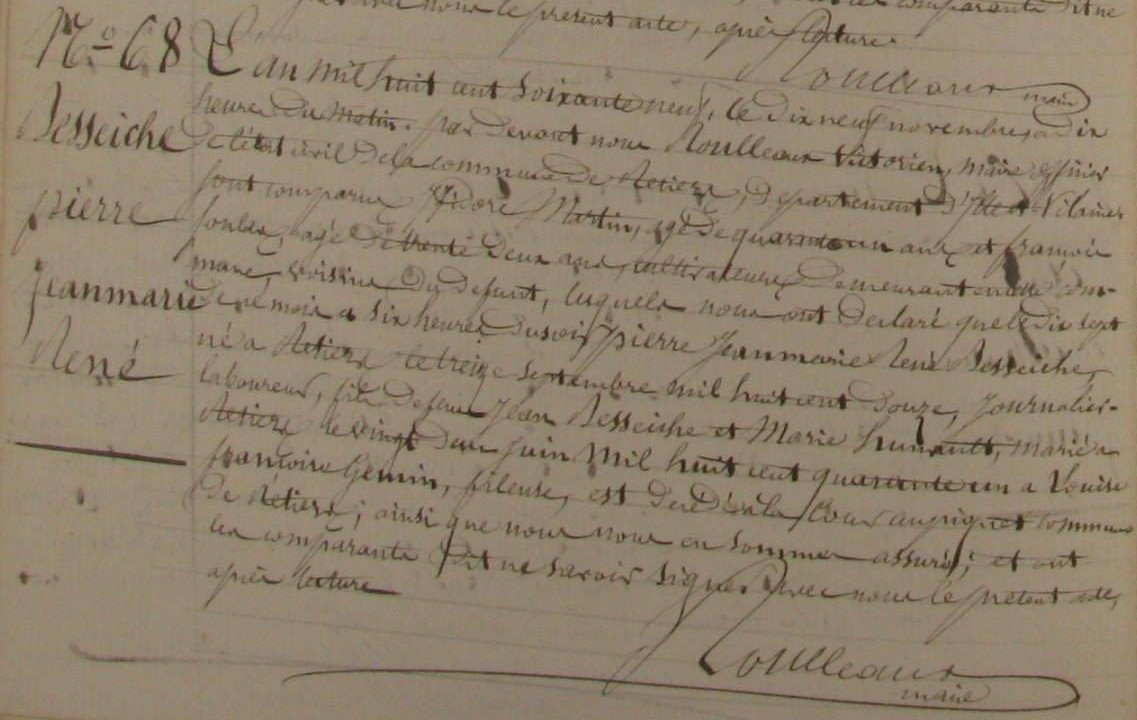 le présent acte, après lecture.
Roulleaux maire
N.o 68
Besseiche
pierre
Jeanmarie
René
L'an mil huit cent soixante neuf, le dix neuf novembre, a dix
heures du Matin. par devant nous Roulleaux Victorien, maire officier
de l'état civil de la commune de Retiers, département d'Ille et Vilaine
sont comparus Isidore Martin, agé de quarante un ans et francois
agé de trente deux ans, cultivateurs demeurant en cette com-
mune, voisins du defunt, lesquels nous ont declaré que le dix sept
de ce mois a six heures du soir pierre Jeanmarie René Besseiche,
né a Retiers le treize septembre mil huit cent douze, Journalier-
laboureur, fils de feu Jean Besseiche et Marie hunault, marié a
Retiers le vingt deux juin mil huit cent quarante un a Louise
francoise Gemin, fileuse, est decedé a la commune
de Retiers; ainsi que nous nous en sommes assuré; et ont
les comparants dit ne savoir signer avec nous le présent acte,
après lecture
Roulleaux
maire